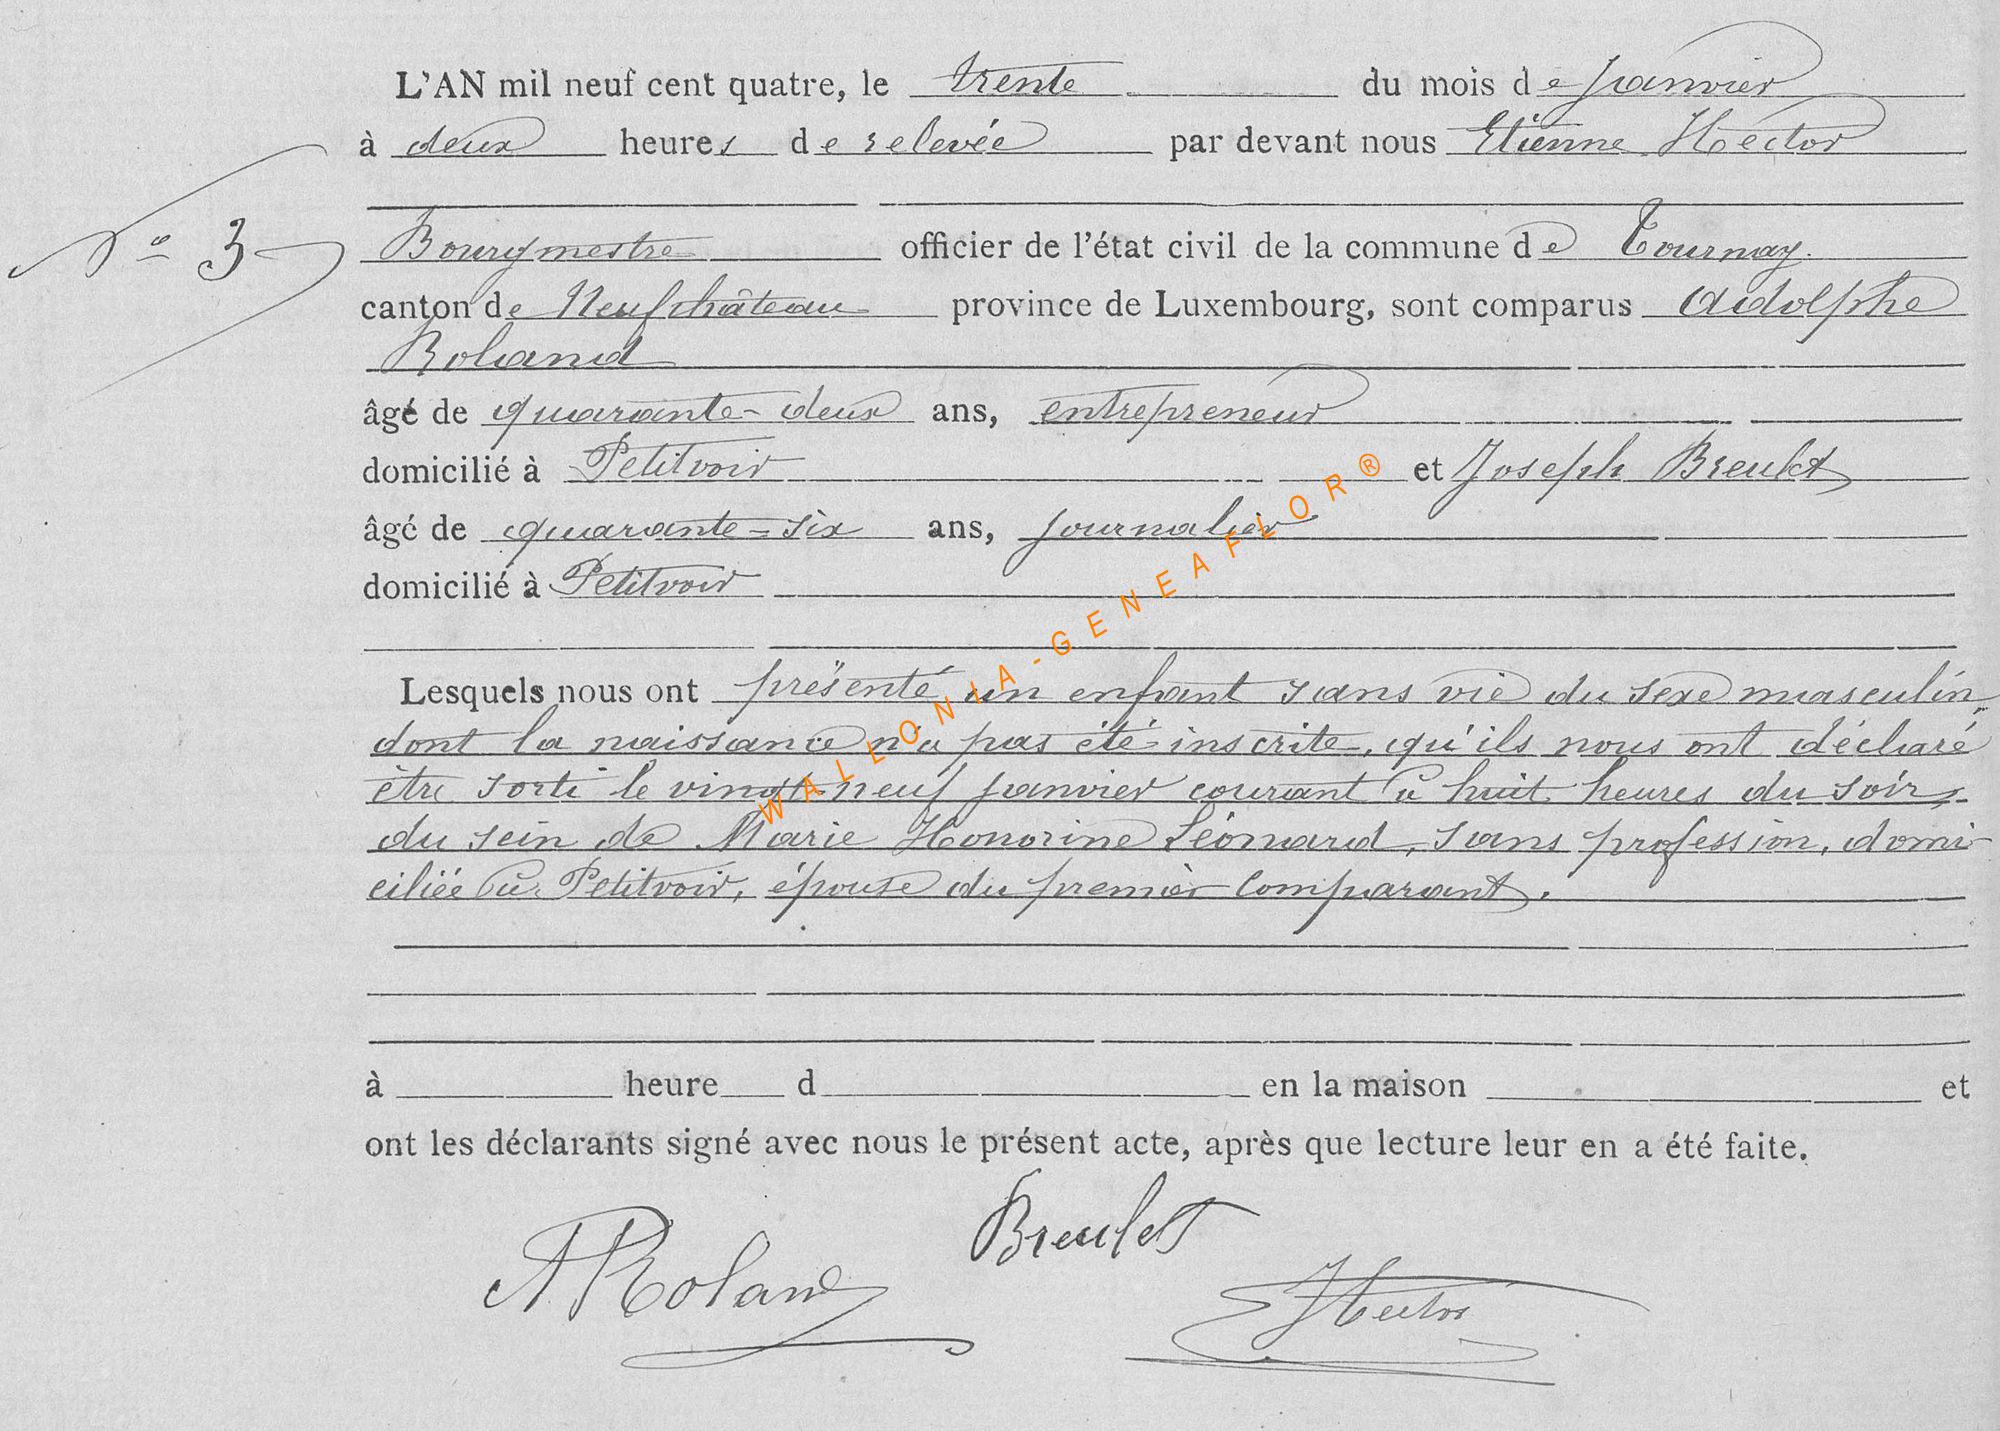 L'AN mil neuf cent quatre, le trente du mois de janvier
à deux heures de relevée par devant nous Etienne Hector
N° 3
Bourgmestre officier de l'état civil de la commune de Tournay.
canton de Neufchâteau province de Luxembourg, sont comparus Adolphe
Roland
âgé de quarante-deux ans, entrepreneur
domicilié à Petitvoir et Joseph Breulet
âgé de quarante=six ans, journalier
domicilié à Petitvoir
Lesquels nous ont présenté un enfant sans vie du sexe masculin,
dont la naissance n'a pas été inscrite, qu'ils nous ont déclaré
être sorti le vingt-neuf janvier courant à huit heures du soir,
du sein de Marie Honorine Léonard, sans profession, domi-
ciliée à Petitvoir, épouse du premier comparant.
à heure d en la maison et
ont les déclarants signé avec nous le présent acte, après que lecture leur en a été faite.
A Roland Breulet
E Hector
WALLONIA-GENEAFLOR®